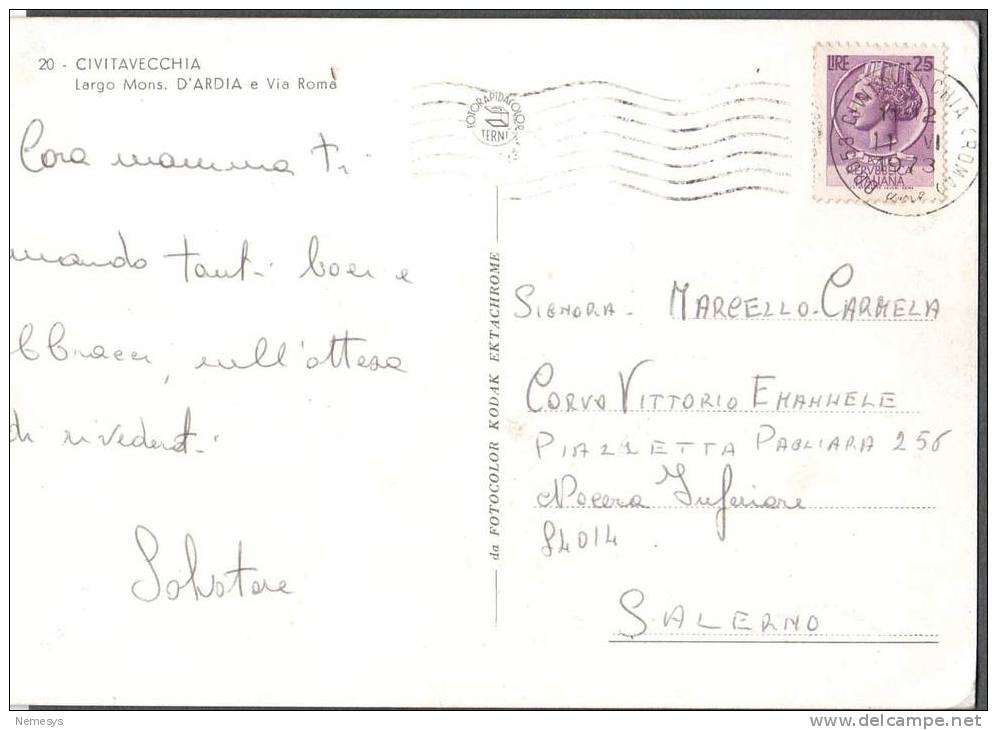 20 - CIVITAVECCHIA
Largo Mons. D'ARDIA e Via Roma
Cara mamma ti
mando tanti baci e
bbracci, nell'attesa
di rivederti
Salvatore
FOTORAPIDACOLOR
TERNI
LIRE 25
00053 CIVITAVECCHIA (ROMA)
11-12
11 VI
1973
REPVBBLICA
ITALIANA
da FOTOCOLOR KODAK EKTACHROME
SIGNORA - MARCELLO-CARMELA
CORSO VITTORIO EMANUELE
PIAZZETTA PAGLIARA 256
Nocera Inferiore
84014
SALERNO
Nemesys
www.delcampe.net